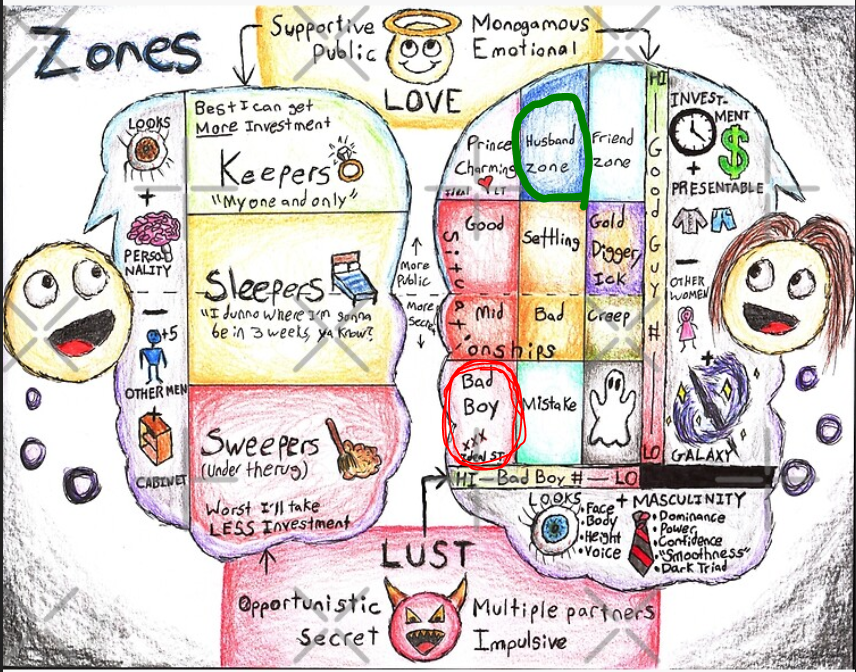 Zones
Supportive
Public
Monogamous
Emotional
LOVE
LOOKS
+
PERSO
NALITY
+5
OTHER MEN
+
CABINET
Best I can get
More Investment
Keepers
"My one and only"
Sleepers
"I dunno where I'm gonna
be in 3 weeks, ya know?
Sweepers
(Under the rug)
Worst I'll take
LESS Investment
More
Public
More
Secret
Prince
Charming
Ideal LT
Husband
zone
Friend
zone
Good
Settling
Gold
Digger/
Ick
Mid
Bad
Creep
Situationships
Bad
Boy
xxx
Ideal ST
Mistake
HI
Good Guy #
LO
HI - Bad Boy # - LO
INVEST-
MENT
$
+
PRESENTABLE
OTHER
WOMEN
+
GALAXY
LOOKS
• Face
• Body
• Height
• Voice
+ MASCULINITY
• Dominance
• Power
• Confidence
• "Smoothness"
• Dark Triad
LUST
Opportunistic
Secret
Multiple partners
Impulsive